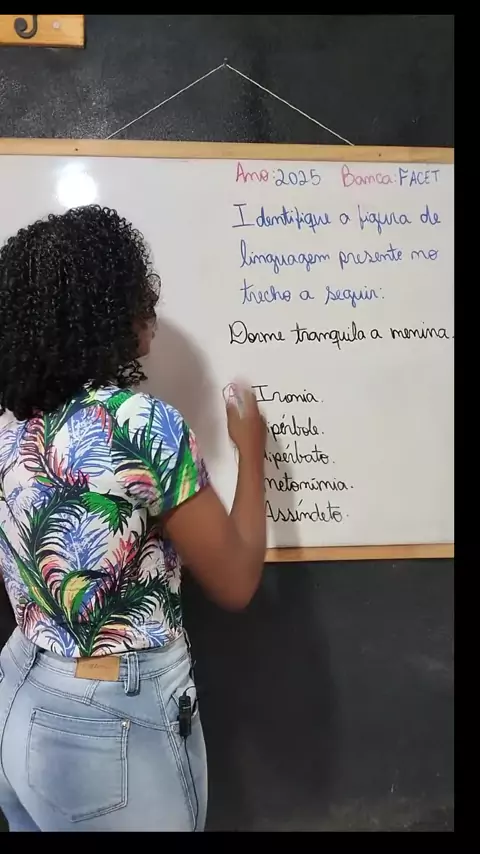 Ano: 2025 Banca: FACET
Identifique a figura de
linguagem presente no
trecho a seguir:
Dorme tranquila a menina.
A Ironia.
ipérbole.
ipérbato.
metonímia.
Assíndeto.